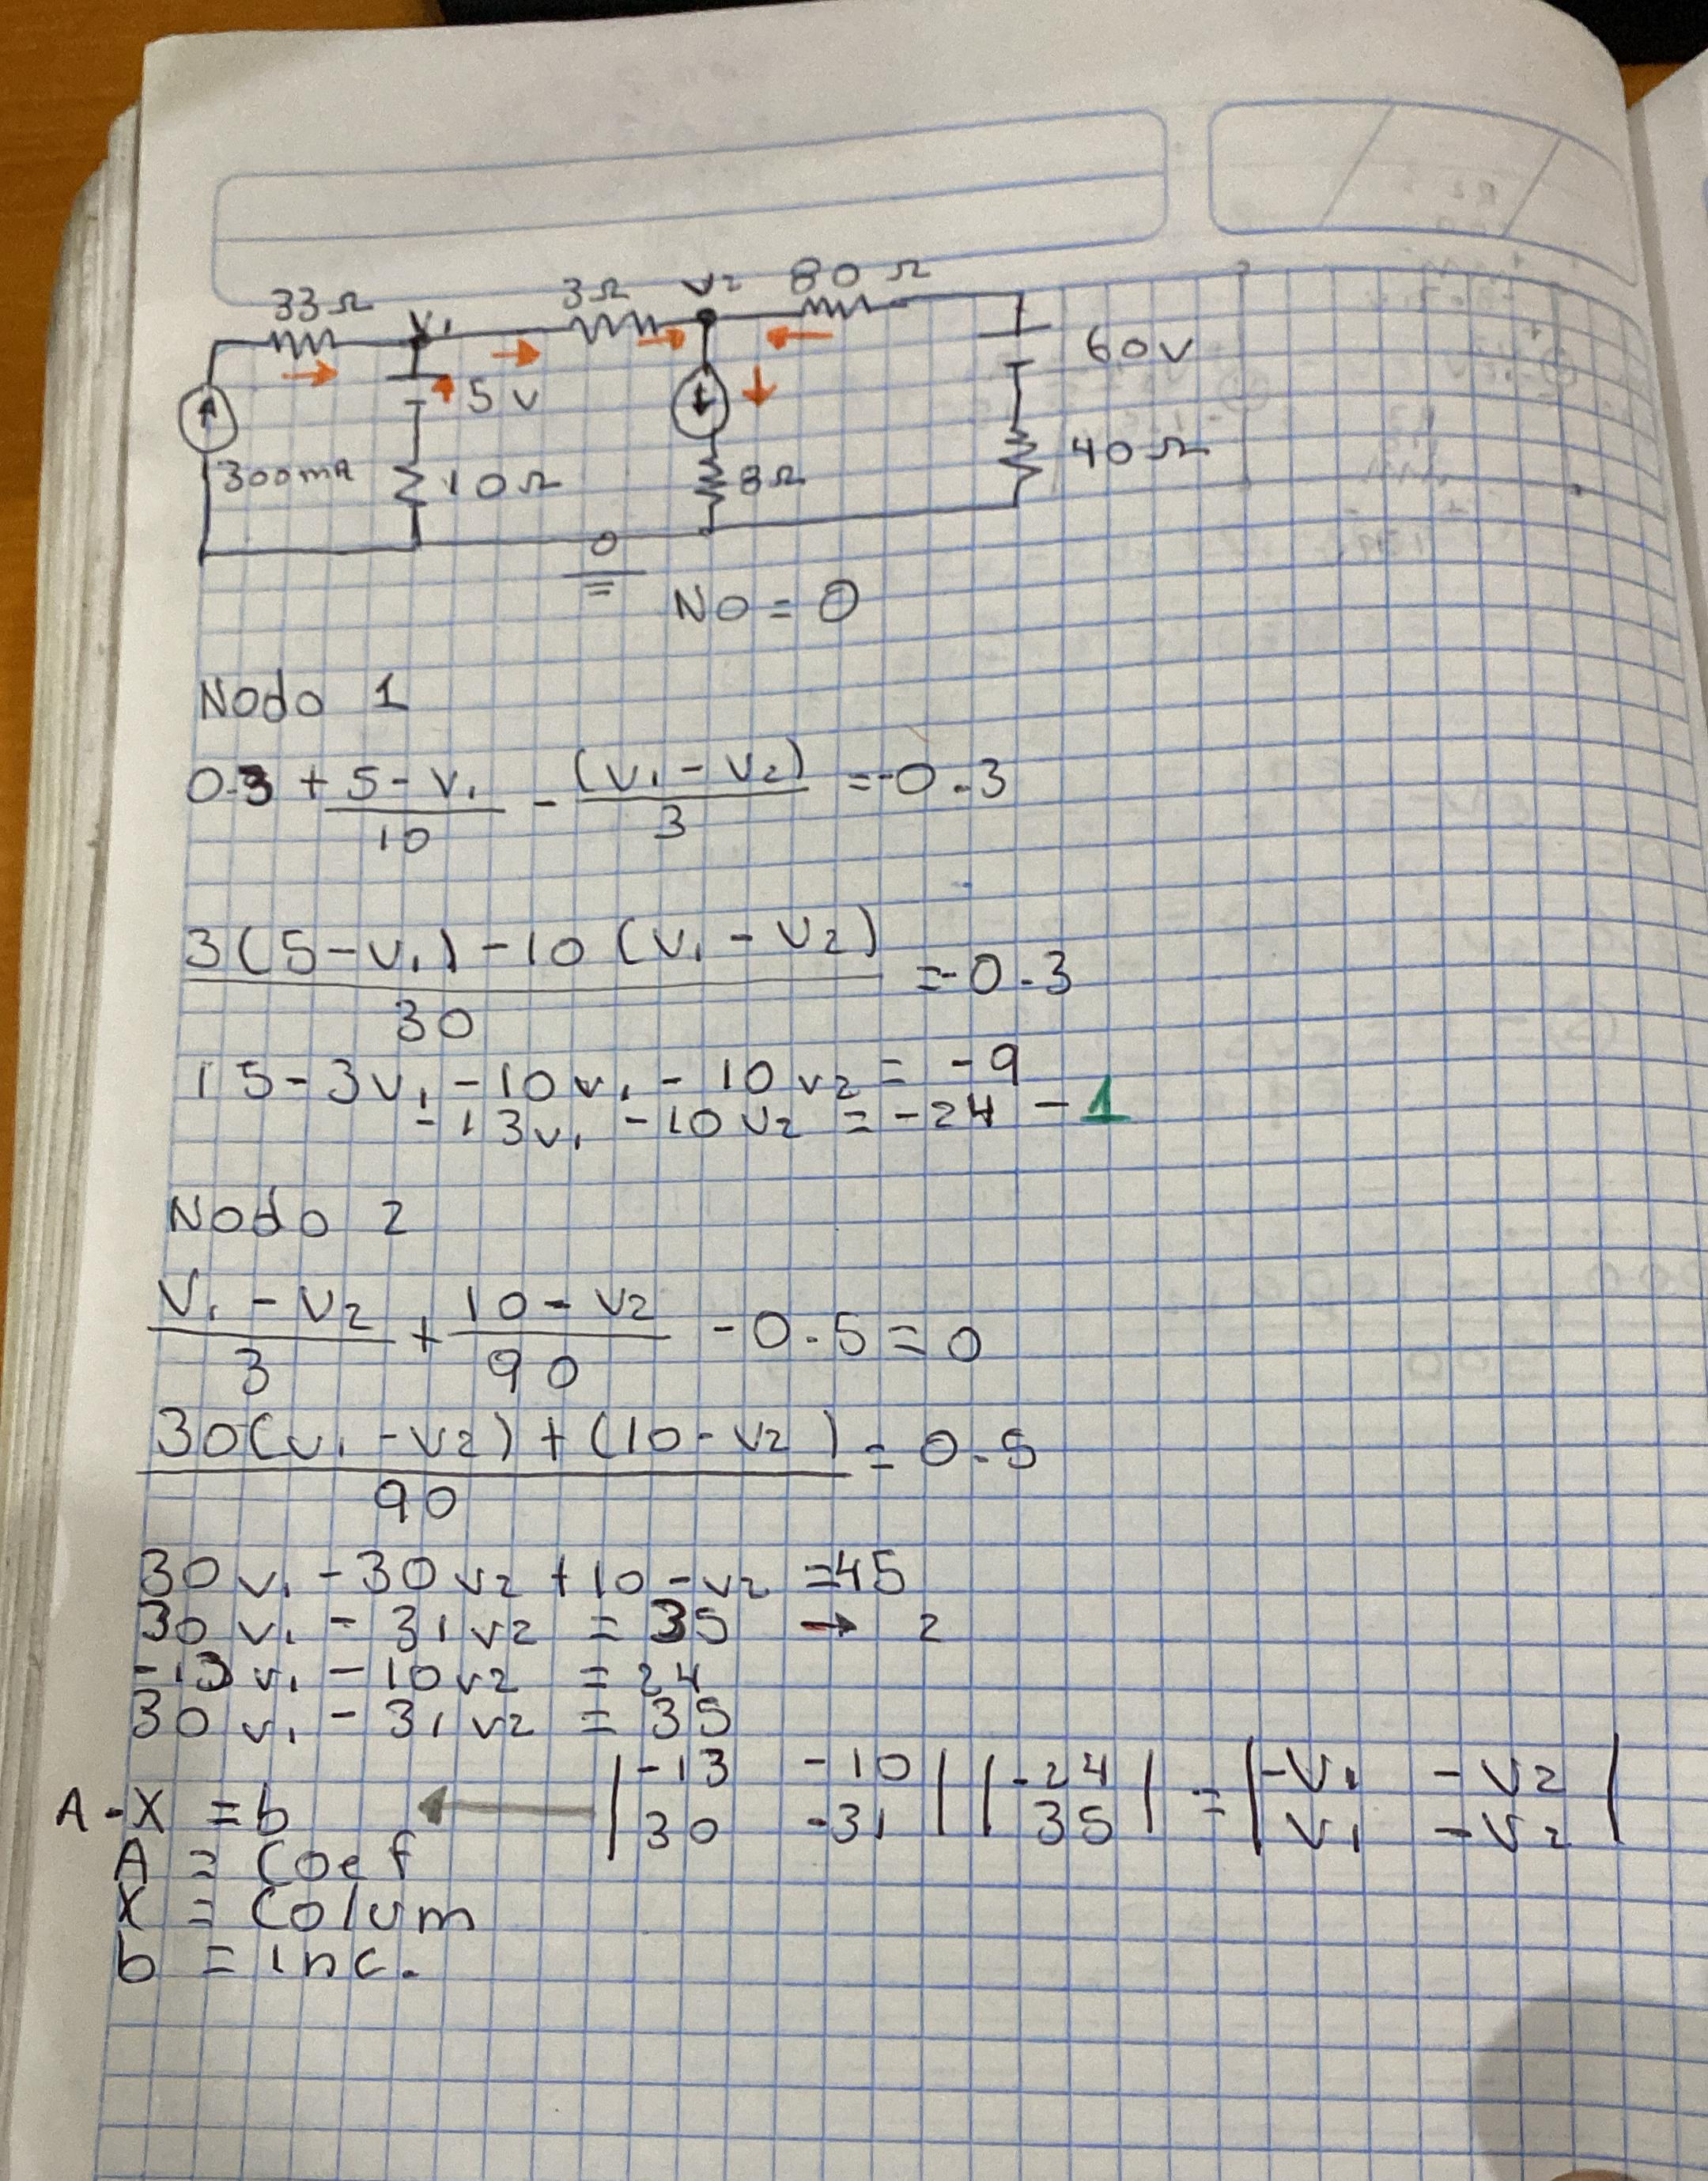 33Ω V₁ 3Ω V₂ 80Ω
5v 60v
300mA 10Ω 8Ω 40Ω
0
N0 = 0
Nodo 1
0.3 + (5 - V₁)/10 - (V₁ - V₂)/3 = -0.3
(3(5-V₁) - 10(V₁ - V₂))/30 = -0.3
15 - 3V₁ - 10V₁ - 10V₂ = -9
-13V₁ - 10V₂ = -24 - 1
Nodo 2
(V₁ - V₂)/3 + (10 - V₂)/90 - 0.5 = 0
(30(V₁ - V₂) + (10 - V₂))/90 = 0.5
30V₁ - 30V₂ + 10 - V₂ = 45
30V₁ - 31V₂ = 35 → 2
-13V₁ - 10V₂ = 24
30V₁ - 31V₂ = 35
|-13 -10| |-24| = |-V₁ -V₂|
|30 -31| |35| |V₁ -V₂|
A - X = b ←
A = Coef
X = Colum
b = inc.